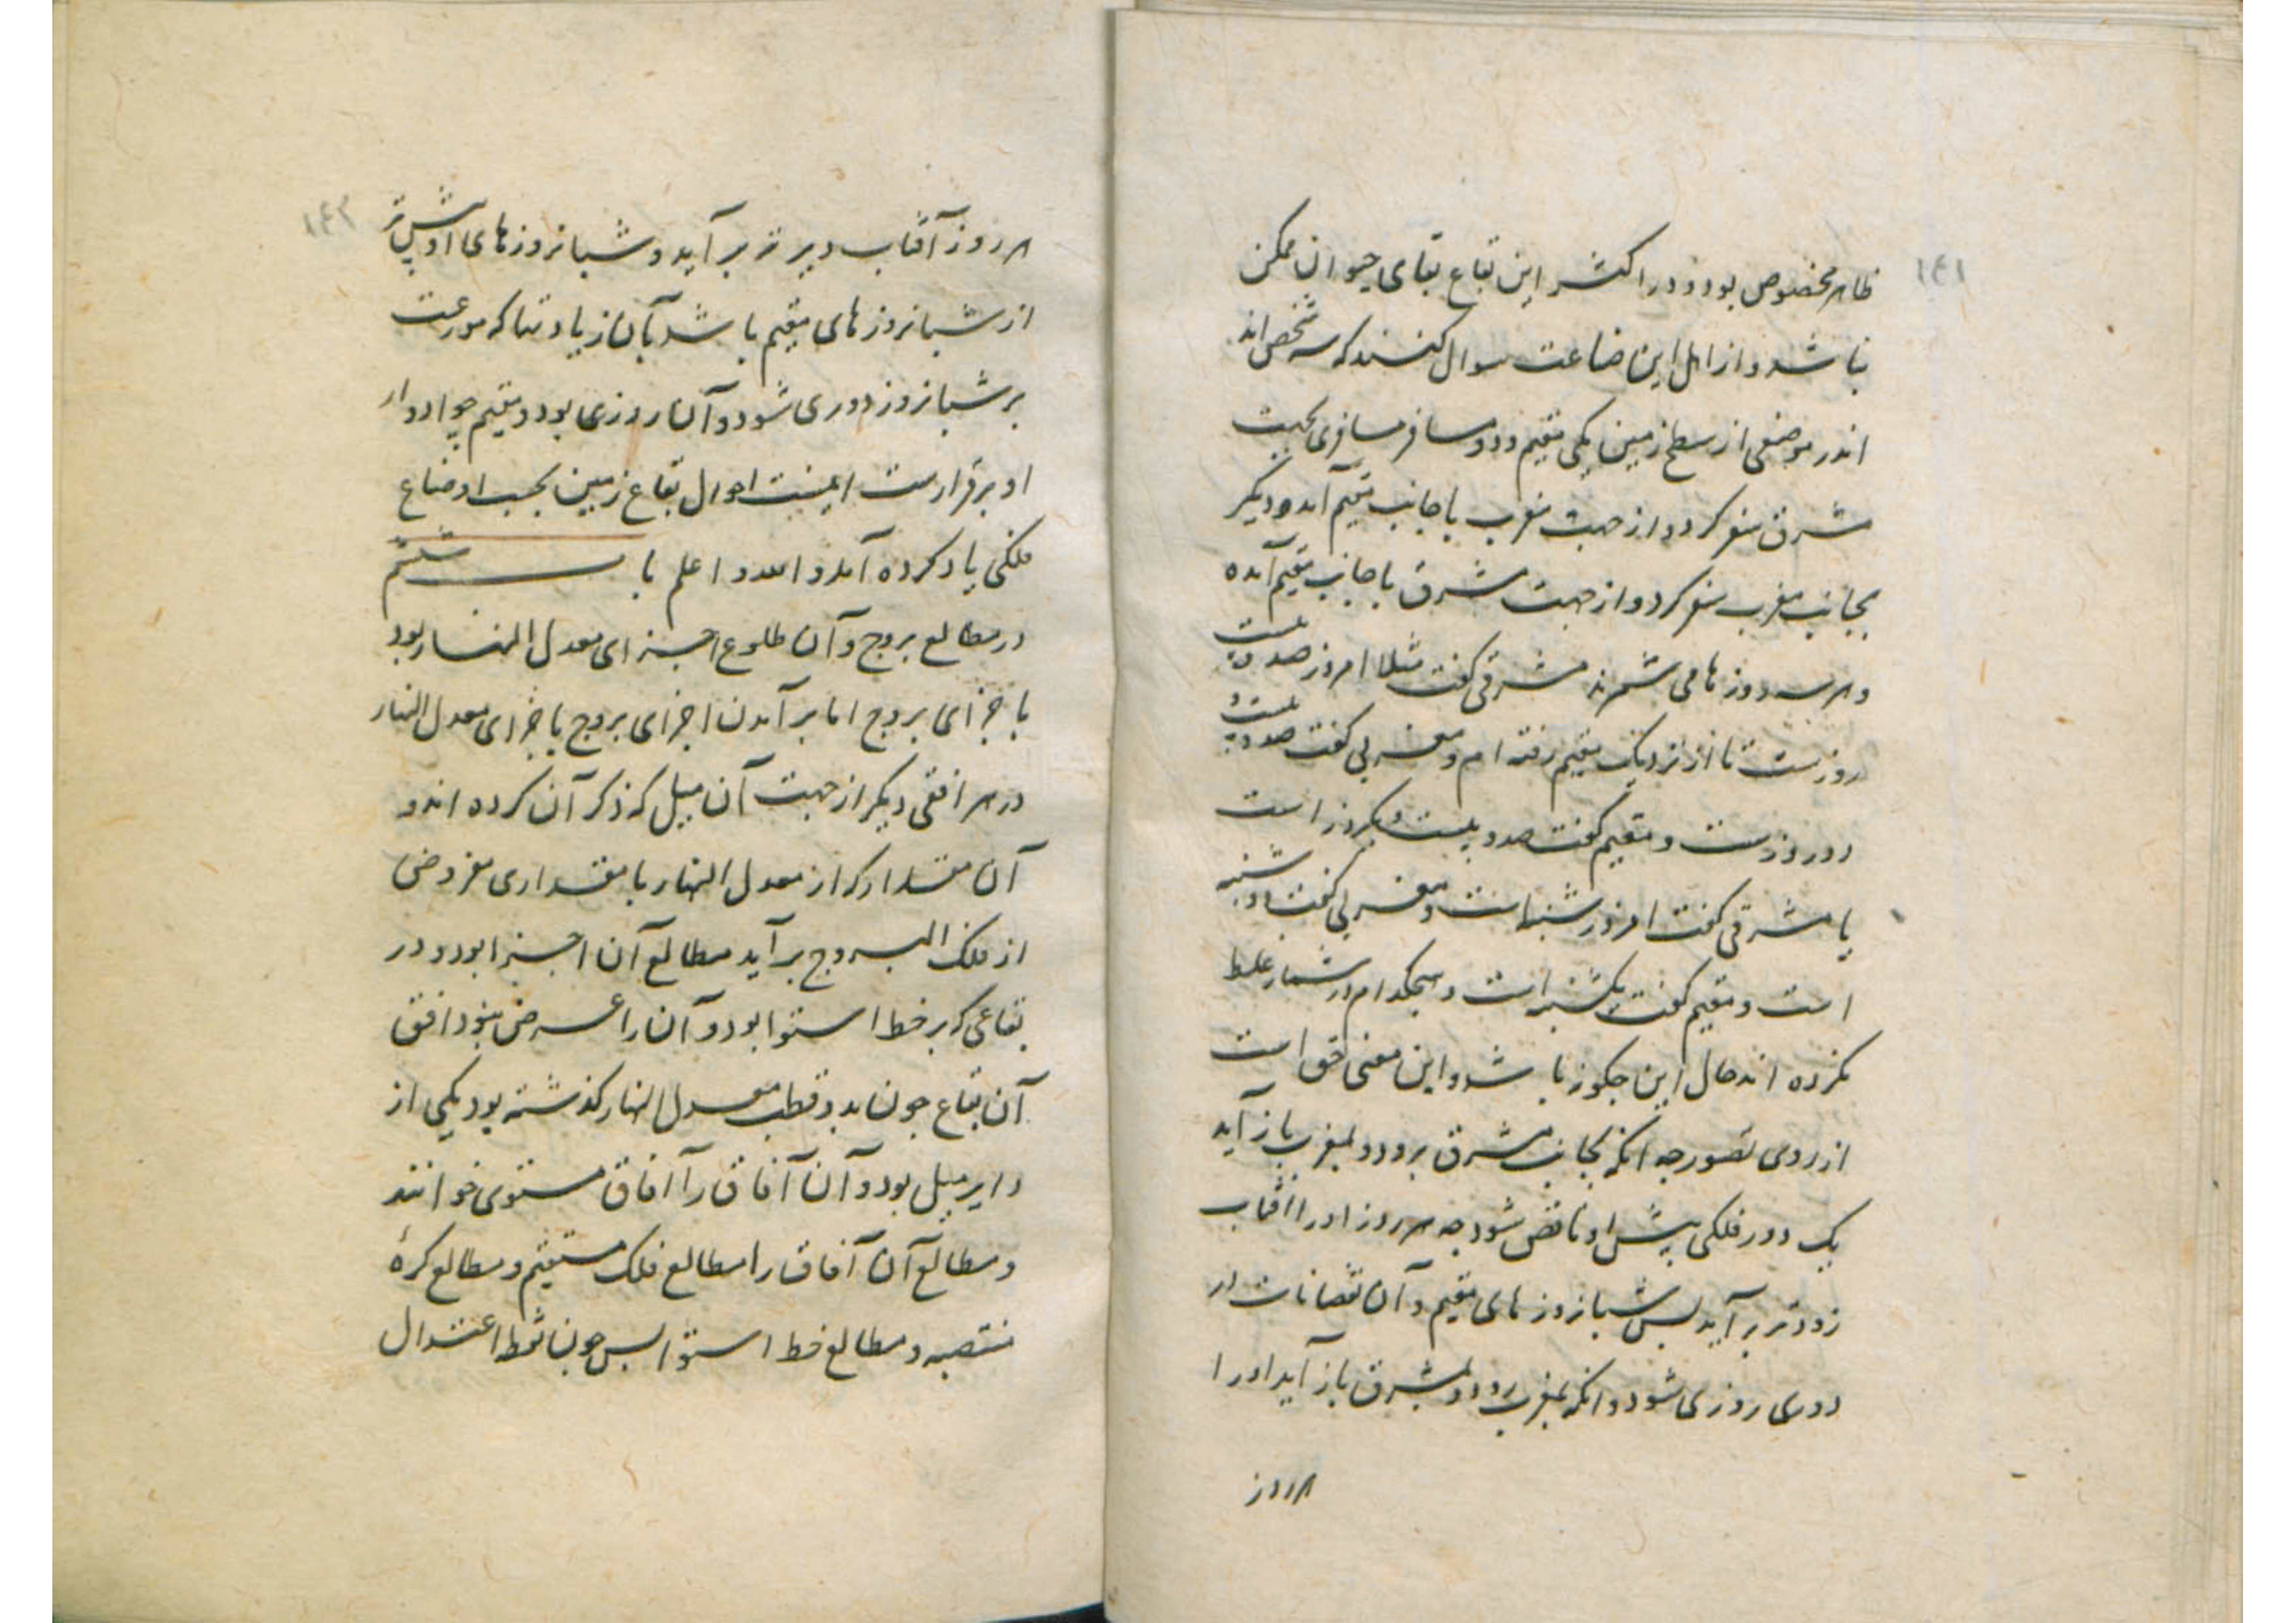 ۱۴۱
ظاهر مخصوص بود و در اکثر این بقاع بقای حیوان ممکن
نباشد و از اهل این صناعت سوال کنند که سه شخص اند
اندر موضعی از سطح زمین یکی مقیم و دو مسافر مسافری بجهت
شرق سفر کرد و از جهت مغرب با جانب مقیم آمد و دیگر
بجانب مغرب سفر کرد و از جهت مشرق با جانب مقیم آمده
و هر سه روزها می شمرند مشرقی گفت مثلا امروز صد و بیست
روزست تا از نزدیک مقیم رفته ام و مغربی گفت صد و بیست و
دو روزست و مقیم گفت صد و بیست و یکروز است
یا مشرقی گفت امروز شنبه است و مغربی گفت دوشنبه
است و مقیم گفت یکشنبه است و هیچکدام در شمار غلط
نکرده اند حال این چگونه باشد و این معنی حق است
از روی تصور چه انکه بجانب مشرق برود و بمغرب باز آید
یک دور فلکی پیش او ناقص شود چه هر روز او را افتاب
زودتر بر آید پس شبانروزهای مقیم و آن نقصانات در
دوری روزی شود و انکه بمغرب رود و بمشرق باز آید او را
هر روز
۱۴۲
هر روز آفتاب دیرتر بر آید و شبانروزهای او بیش تر
از شبانروزهای مقیم باشد بآن زیادتها که موزعست
بر شبانروز دوری شود و آن روزی بود و مقیم چو ادوار
او برقرارست اینست احوال بقاع زمین بحسب اوضاع
فلکی یاد کرده آمد و الله اعلم باب ششم
در مطالع بروج و آن طلوع اجزای معدل النهار بود
با جزای بروج اما بر آمدن اجزای بروج با جزای معدل النهار
در هر افقی دیگر از جهت آن میل که ذکر آن کرده اند و
آن مقدار که از معدل النهار با مقداری مفروض
از فلک البروج بر آید مطالع آن اجزا بود و در
بقاعی که بر خط استوا بود و آن را عرض نبود افق
آن بقاع چون بدو قطب معدل النهار گذشته بود یکی از
دایر میل بود و آن آفاق را آفاق مستوی خوانند
و مطالع آن آفاق را مطالع فلک مستقیم و مطالع کرهٔ
منتصبه و مطالع خط استوا پس چون نقطه اعتدال